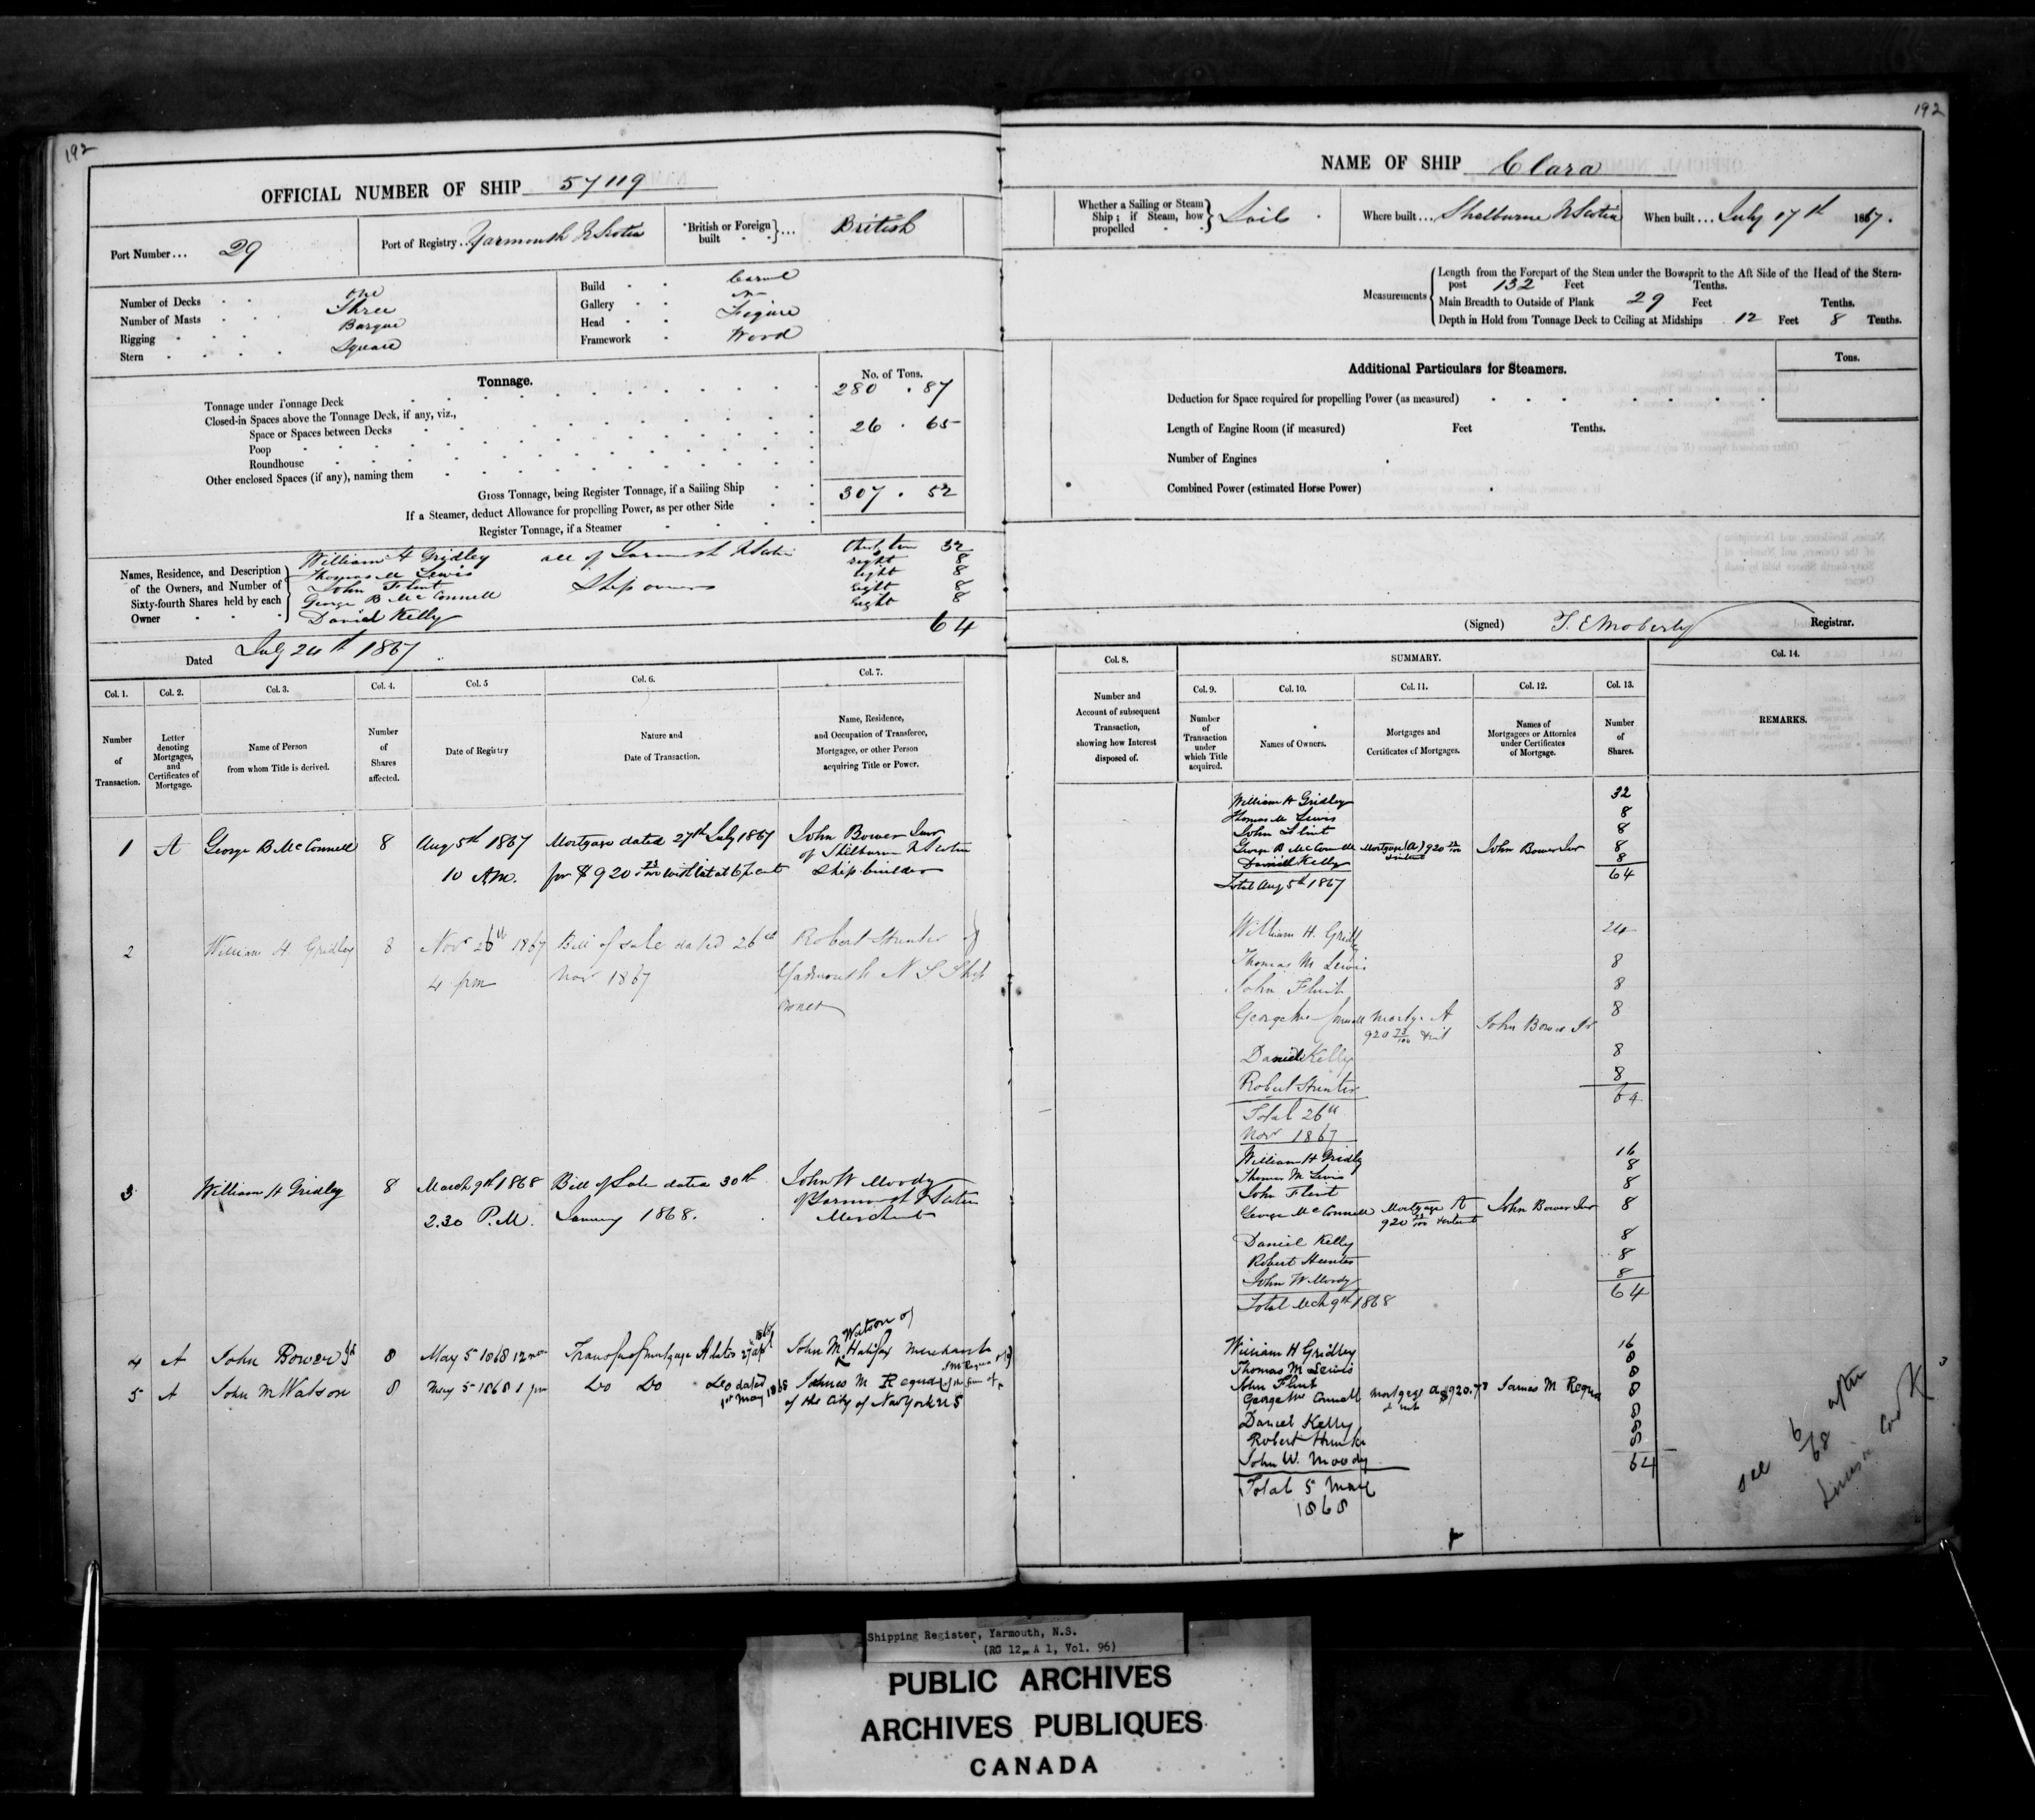 192
OFFICIAL NUMBER OF SHIP 57119
Port Number... 29
Port of Registry.. Yarmouth N Scotia
British or Foreign built ... British
Number of Decks one
Number of Masts Three
Rigging Barque
Stern Square
Build Carvel
Gallery
Head Figure
Framework Wood
Tonnage.
No. of Tons.
Tonnage under Tonnage Deck 280 . 87
Closed-in Spaces above the Tonnage Deck, if any, viz.,
Space or Spaces between Decks 26 . 65
Poop
Roundhouse
Other enclosed Spaces (if any), naming them
Gross Tonnage, being Register Tonnage, if a Sailing Ship 307 . 52
If a Steamer, deduct Allowance for propelling Power, as per other Side
Register Tonnage, if a Steamer
Names, Residence, and Description of the Owners, and Number of Sixty-fourth Shares held by each Owner
William H Gridley all of Yarmouth N Scotia 32
Thomas M Lewis eight 8
John Flint Ship owners Eight 8
George B McConnell Eight 8
Daniel Kelly Eight 8
64
Dated July 24th 1867
Col. 1. Col. 2. Col. 3. Col. 4. Col. 5 Col. 6. Col. 7.
Number of Transaction.
Letter denoting Mortgages, and Certificates of Mortgage.
Name of Person from whom Title is derived.
Number of Shares affected.
Date of Registry
Nature and Date of Transaction.
Name, Residence, and Occupation of Transferee, Mortgagee, or other Person acquiring Title or Power.
1 A George B McConnell 8 Aug 5th 1867 Mortgage dated 27th July 1867 John Bower Junr
10 A.M. for $920 73/100 with Int at 6 p cent of Shelburne N Scotia
Ship builder
2 William H. Gridley 8 Nov 26th 1867 Bill of sale dated 26th Robert Hunter of
4 pm Nov 1867 Yarmouth N S Ship
owner
3 William H Gridley 8 March 9th 1868 Bill of Sale dated 30th John W Moody
2.30 P.M. January 1868. of Yarmouth N Scotia
Merchant
4 A John Bower Jr 8 May 5 1868 12 noon Transfer of mortgage A dated John M. Watson of Halifax Merchant
5 A John M Watson 8 May 5 1868 1 pm Do Do Do dated 1st May 1868 James M Requa
of the City of New York U S
192
NAME OF SHIP Clara
Whether a Sailing or Steam Ship; if Steam, how propelled Sails
Where built... Shelburne N Scotia
When built... July 17th 1867.
Measurements
Length from the Forepart of the Stem under the Bowsprit to the Aft Side of the Head of the Stern-
post 132 Feet Tenths.
Main Breadth to Outside of Plank 29 Feet Tenths.
Depth in Hold from Tonnage Deck to Ceiling at Midships 12 Feet 8 Tenths.
Additional Particulars for Steamers.
Tons.
Deduction for Space required for propelling Power (as measured)
Length of Engine Room (if measured) Feet Tenths.
Number of Engines
Combined Power (estimated Horse Power)
(Signed) T. E Moberly Registrar.
Col. 8. SUMMARY. Col. 14.
Col. 9. Col. 10. Col. 11. Col. 12. Col. 13.
Number and Account of subsequent Transaction, showing how Interest disposed of.
Number of Transaction under which Title acquired.
Names of Owners.
Mortgages and Certificates of Mortgages.
Names of Mortgagees or Attornies under Certificates of Mortgage.
Number of Shares.
REMARKS.
William H Gridley 32
Thomas M Lewis 8
John Flint 8
George B McConnell Mortgage (A) 920 73/100 John Bower Jnr 8
Daniel Kelly 8
Total Aug 5th 1867 64
William H. Gridley 24
Thomas M Lewis 8
John Flint 8
George McConnell Mortge A 920 73/100 & Int John Bower Jr 8
Daniel Kelly 8
Robert Hunter 8
64
Total 26th
Nov 1867
William H Gridley 16
Thomas M Lewis 8
John Flint 8
George McConnell Mortgage A John Bower Jnr 8
920 73/100 & Interest
Daniel Kelly 8
Robert Hunter 8
John W Moody 8
Total Mch 9th 1868 64
William H Gridley 16
Thomas M Lewis 8
John Flint 8
George McConnell Mortgage A $920.73 James M Requa 8
& Int
Daniel Kelly 8
Robert Hunter 8
John W. Moody 8
64
Total 5 May
1868
see 6/68 after
Shipping Register, Yarmouth, N.S.
(RG 12, A 1, Vol. 96)
PUBLIC ARCHIVES
ARCHIVES PUBLIQUES
CANADA